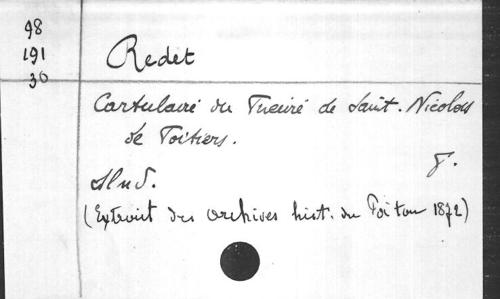 98
191
30
Redet
Cartulaire du Prieuré de Saint. Nicolas
de Poitiers.
Sl n d.
(Extrait des archives hist. du Poitou 1872)